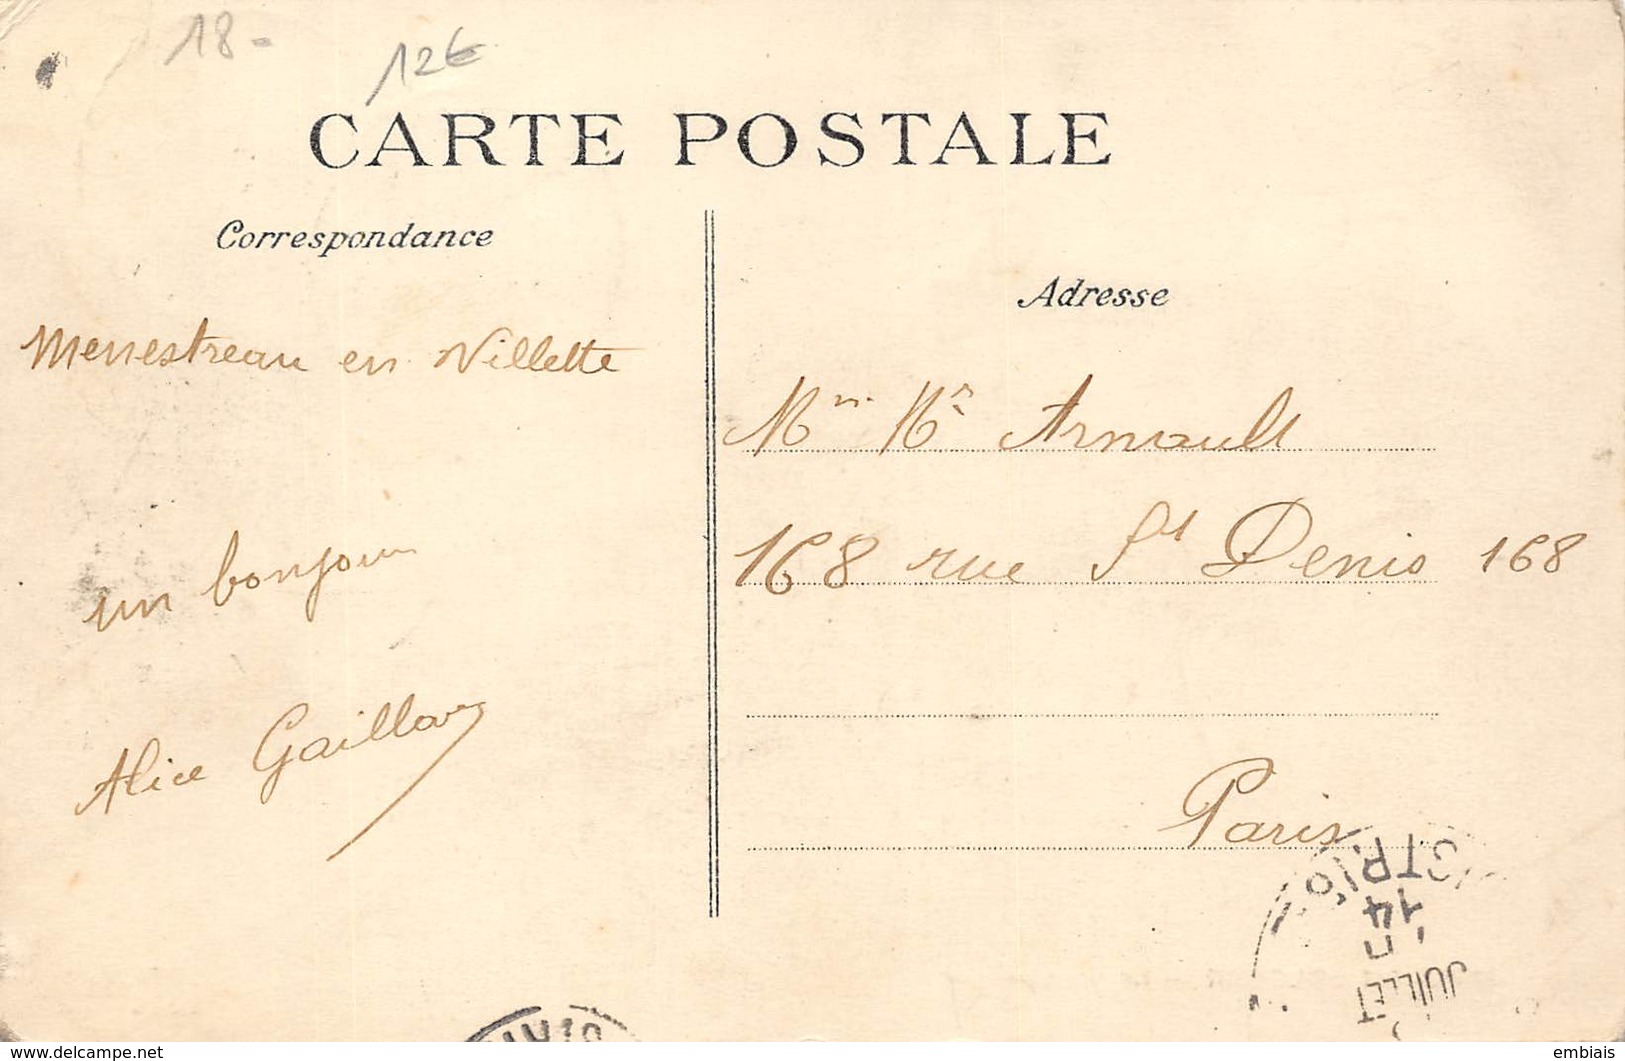 18-
12€
CARTE POSTALE
Correspondance
Adresse
Menestreau en Villette
un bonjour
Alice Gaillard
Mme Mr Arnault
168 rue St Denis 168
Paris
14
JUILLET
delcampe.net
embiais